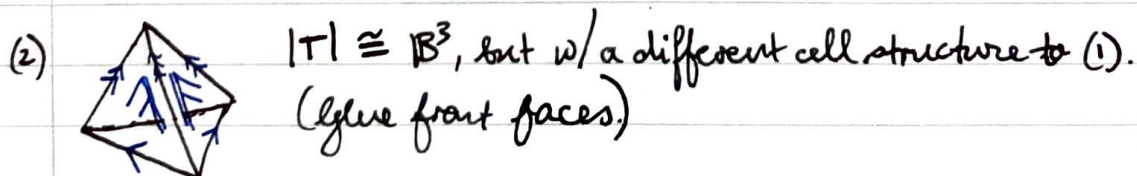 (2) |T| ≅ 𝔹³, but w/ a different cell structure to (1).
(Glue front faces)